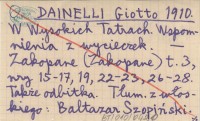 DAINELLI Giotto 1910.
W Wysokich Tatrach. Wspom-
nienia z wycieczek. —
Zakopane (Zakopane) t. 3,
nry 15-17, 19, 22-23, 26-28.
Także odbitka. Tłum. z włos-
kiego: Baltazar Szopiński.